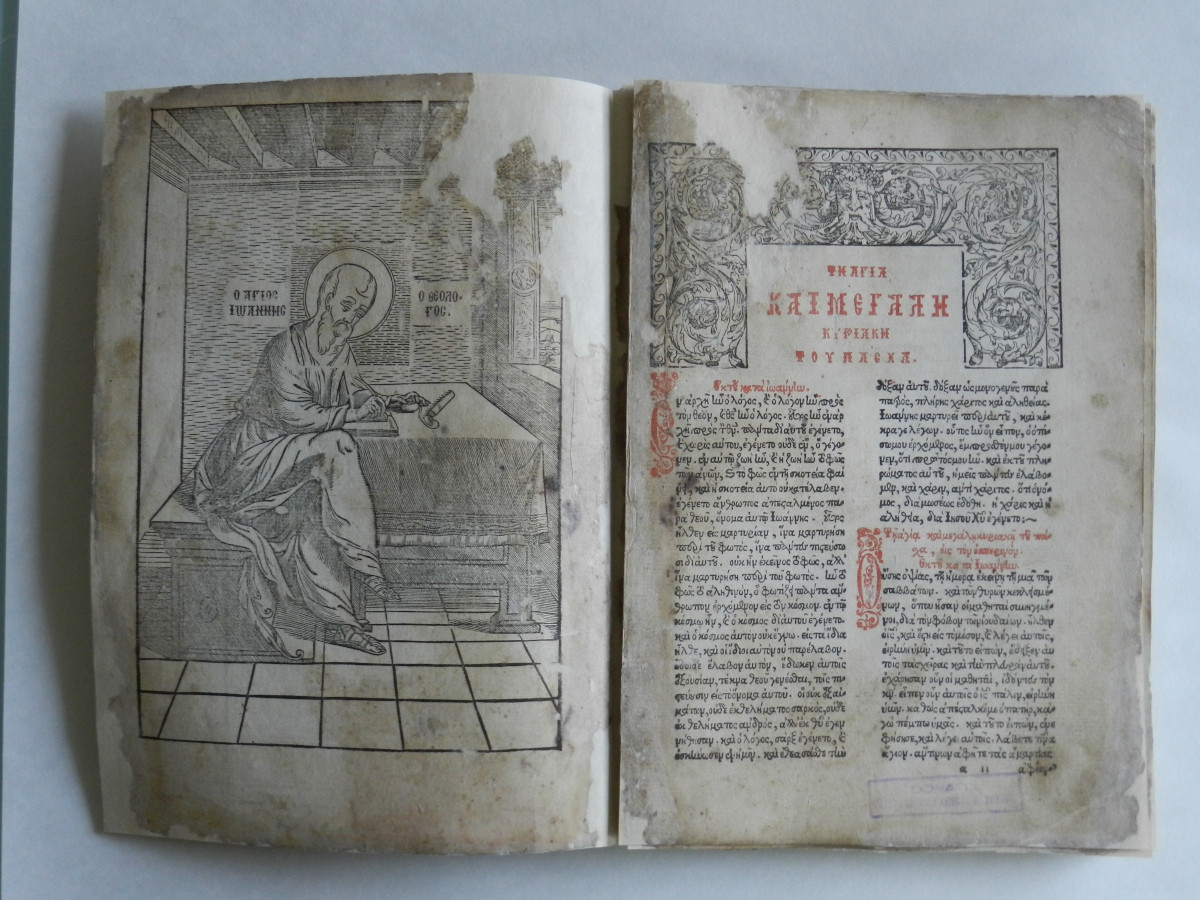 Ο ΑΓΙΟΣ
ΙΩΑΝΝΗΣ
Ο ΘΕΟΛΟ-
ΓΟΣ.
ΤΗ ΑΓΙΑ
ΚΑΙ ΜΕΓΑΛΗ
ΚΥΡΙΑΚΗ
ΤΟΥ ΠΑΣΧΑ.
Ἐκ τοῦ κατὰ Ἰωάννην.
Ἐν ἀρχῇ ἦν ὁ λόγος, καὶ ὁ λόγος ἦν πρὸς
τὸν θεὸν, καὶ θεὸς ἦν ὁ λόγος. οὗτος ἦν ἐν ἀρ-
χῇ πρὸς τὸν θεόν. πάντα δι αὐτοῦ ἐγένετο,
καὶ χωρὶς αὐτοῦ, ἐγένετο οὐδὲ ἓν, ὃ γέγο-
νεν. ἐν αὐτῷ ζωὴ ἦν, καὶ ἡ ζωὴ ἦν τὸ φῶς
τῶν ἀνθρώπων, καὶ τὸ φῶς ἐν τῇ σκοτεία φαί
νει, καὶ ἡ σκοτεία αὐτὸ οὐ κατέλαβεν.
ἐγένετο ἄνθρωπος ἀπεσαλμένος πα-
ρὰ θεοῦ, ὄνομα αὐτῷ Ἰωάννης. οὗτος
ἦλθεν εἰς μαρτυρίαν, ἵνα μαρτυρήσῃ
περὶ τοῦ φωτὸς, ἵνα πάντες πιστεύσω
σι δι αὐτοῦ. οὐκ ἦν ἐκεῖνος τὸ φῶς, ἀλλ
ἵνα μαρτυρήσῃ περὶ τοῦ φωτός. ἦν τὸ
φῶς τὸ ἀληθινὸν, ὃ φωτίζει πάντα ἄν-
θρωπον ἐρχόμενον εἰς τὸν κόσμον. ἐν τῷ
κόσμῳ ἦν, καὶ ὁ κόσμος δι αὐτοῦ ἐγένετο.
καὶ ὁ κόσμος αὐτὸν οὐκ ἔγνω. εἰς τὰ ἴδια
ἦλθε, καὶ οἱ ἴδιοι αὐτὸν οὐ παρέλαβον.
ὅσοι δὲ ἔλαβον αὐτὸν, ἔδωκεν αὐτοῖς
ἐξουσίαν, τέκνα θεοῦ γενέσθαι, τοῖς πι-
στεύουσιν εἰς τὸ ὄνομα αὐτοῦ. οἳ οὐκ ἐξ αἱ-
μάτων, οὐδὲ ἐκ θελήματος σαρκὸς, οὐδὲ
ἐκ θελήματος ἀνδρὸς, ἀλλ ἐκ θεοῦ ἐγεν
νήθησαν. καὶ ὁ λόγος, σὰρξ ἐγένετο, καὶ
ἐσκήνωσεν ἐν ἡμῖν. καὶ ἐθεασάμεθα τὴν
δόξαν αὐτοῦ. δόξαν ὡς μονογενῆς παρὰ
πατρὸς, πλήρης χάριτος καὶ ἀληθείας.
Ἰωάννης μαρτυρεῖ περὶ αὐτοῦ, καὶ κέ-
κραγε λέγων. οὗτος ἦν ὃν εἶπον, ὁ ὀπί-
σω μου ἐρχόμενος, ἔμπροσθέν μου γέγο-
νεν, ὅτι πρῶτός μου ἦν. καὶ ἐκ τοῦ πλη-
ρώματος αὐτοῦ, ἡμεῖς πάντες ἐλάβο-
μεν, καὶ χάριν, ἀντὶ χάριτος. ὅτι ὁ νό-
μος, διὰ μωσέως ἐδόθη. ἡ χάρις καὶ ἡ
ἀλήθεια, διὰ Ἰησοῦ Χυ ἐγένετο:~
Τῇ ἁγία καὶ μεγάλη κυριακῇ τοῦ πά-
χα, εἰς τὸν ἑσπερινόν.
Ἐκ τοῦ κατὰ Ἰωάννην.
Οὔσης ὀψίας, τῇ ἡμέρα ἐκείνη τῇ μιᾷ τῶν
σαββάτων. καὶ τῶν θυρῶν κεκλησμέ-
νων, ὅπου ἦσαν οἱ μαθηταὶ συνηγμέ-
νοι, διὰ τὸν φόβον τῶν ἰουδαίων. ἦλθεν
ὁ ἰς, καὶ ἔστη εἰς τὸ μέσον, καὶ λέγει αὐτοῖς,
εἰρήνη ὑμῖν. καὶ τοῦτο εἰπὼν, ἔδειξεν αὐ
τοῖς τὰς χεῖρας καὶ τὴν πλευρὰν αὐτοῦ.
ἐχάρησαν οὖν οἱ μαθηταὶ, ἰδόντες τὸν
κν. εἶπεν οὖν αὐτοῖς ὁ ἰς πάλιν, εἰρήνη
ὑμῖν. καθὼς ἀπέσαλκέ με ὁ πατὴρ, κα-
γὼ πέμπω ὑμᾶς. καὶ τοῦτο εἰπὼν, ἐνε
φύσησε, καὶ λέγει αὐτοῖς. λάβετε πνεῦμα
ἅγιον. ἄν τινων ἀφῆτε τὰς ἁμαρτίας
α ii